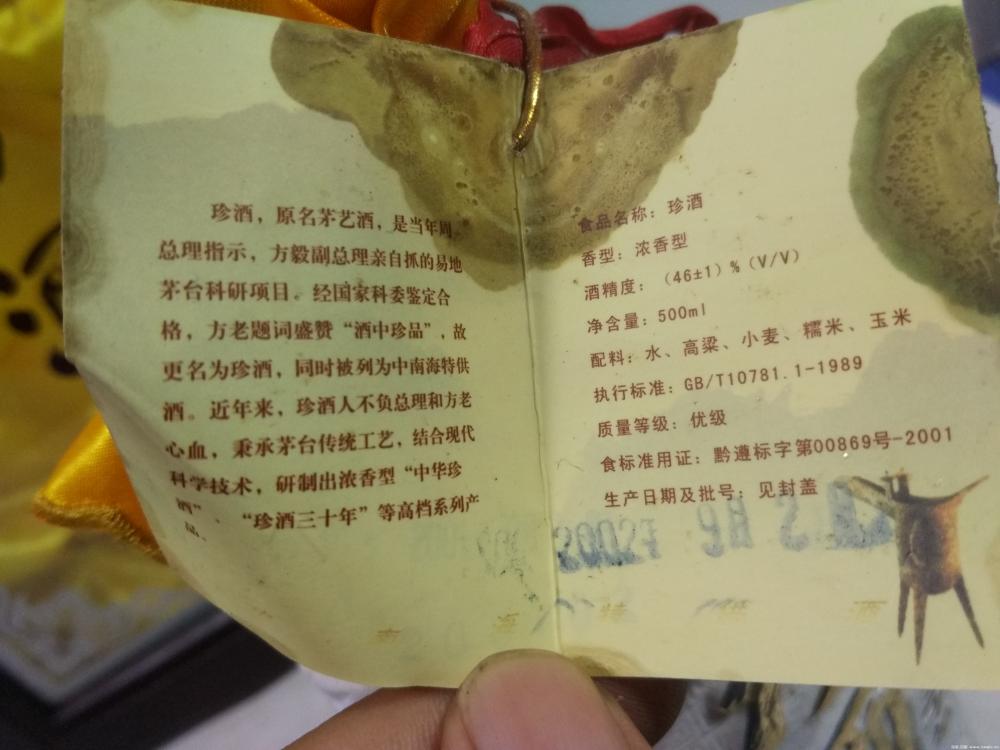 珍酒，原名茅艺酒，是当年周
总理指示，方毅副总理亲自抓的易地
茅台科研项目。经国家科委鉴定合
格，方老题词盛赞“酒中珍品”，故
更名为珍酒，同时被列为中南海特供
酒。近年来，珍酒人不负总理和方老
心血，秉承茅台传统工艺，结合现代
科学技术，研制出浓香型“中华珍
酒”、“珍酒三十年”等高档系列产
品。
食品名称：珍酒
香型：浓香型
酒精度：（46±1）%（V/V）
净含量：500ml
配料：水、高粱、小麦、糯米、玉米
执行标准：GB/T10781.1-1989
质量等级：优级
食标准用证：黔遵标字第00869号-2001
生产日期及批号：见封盖
南海特供酒